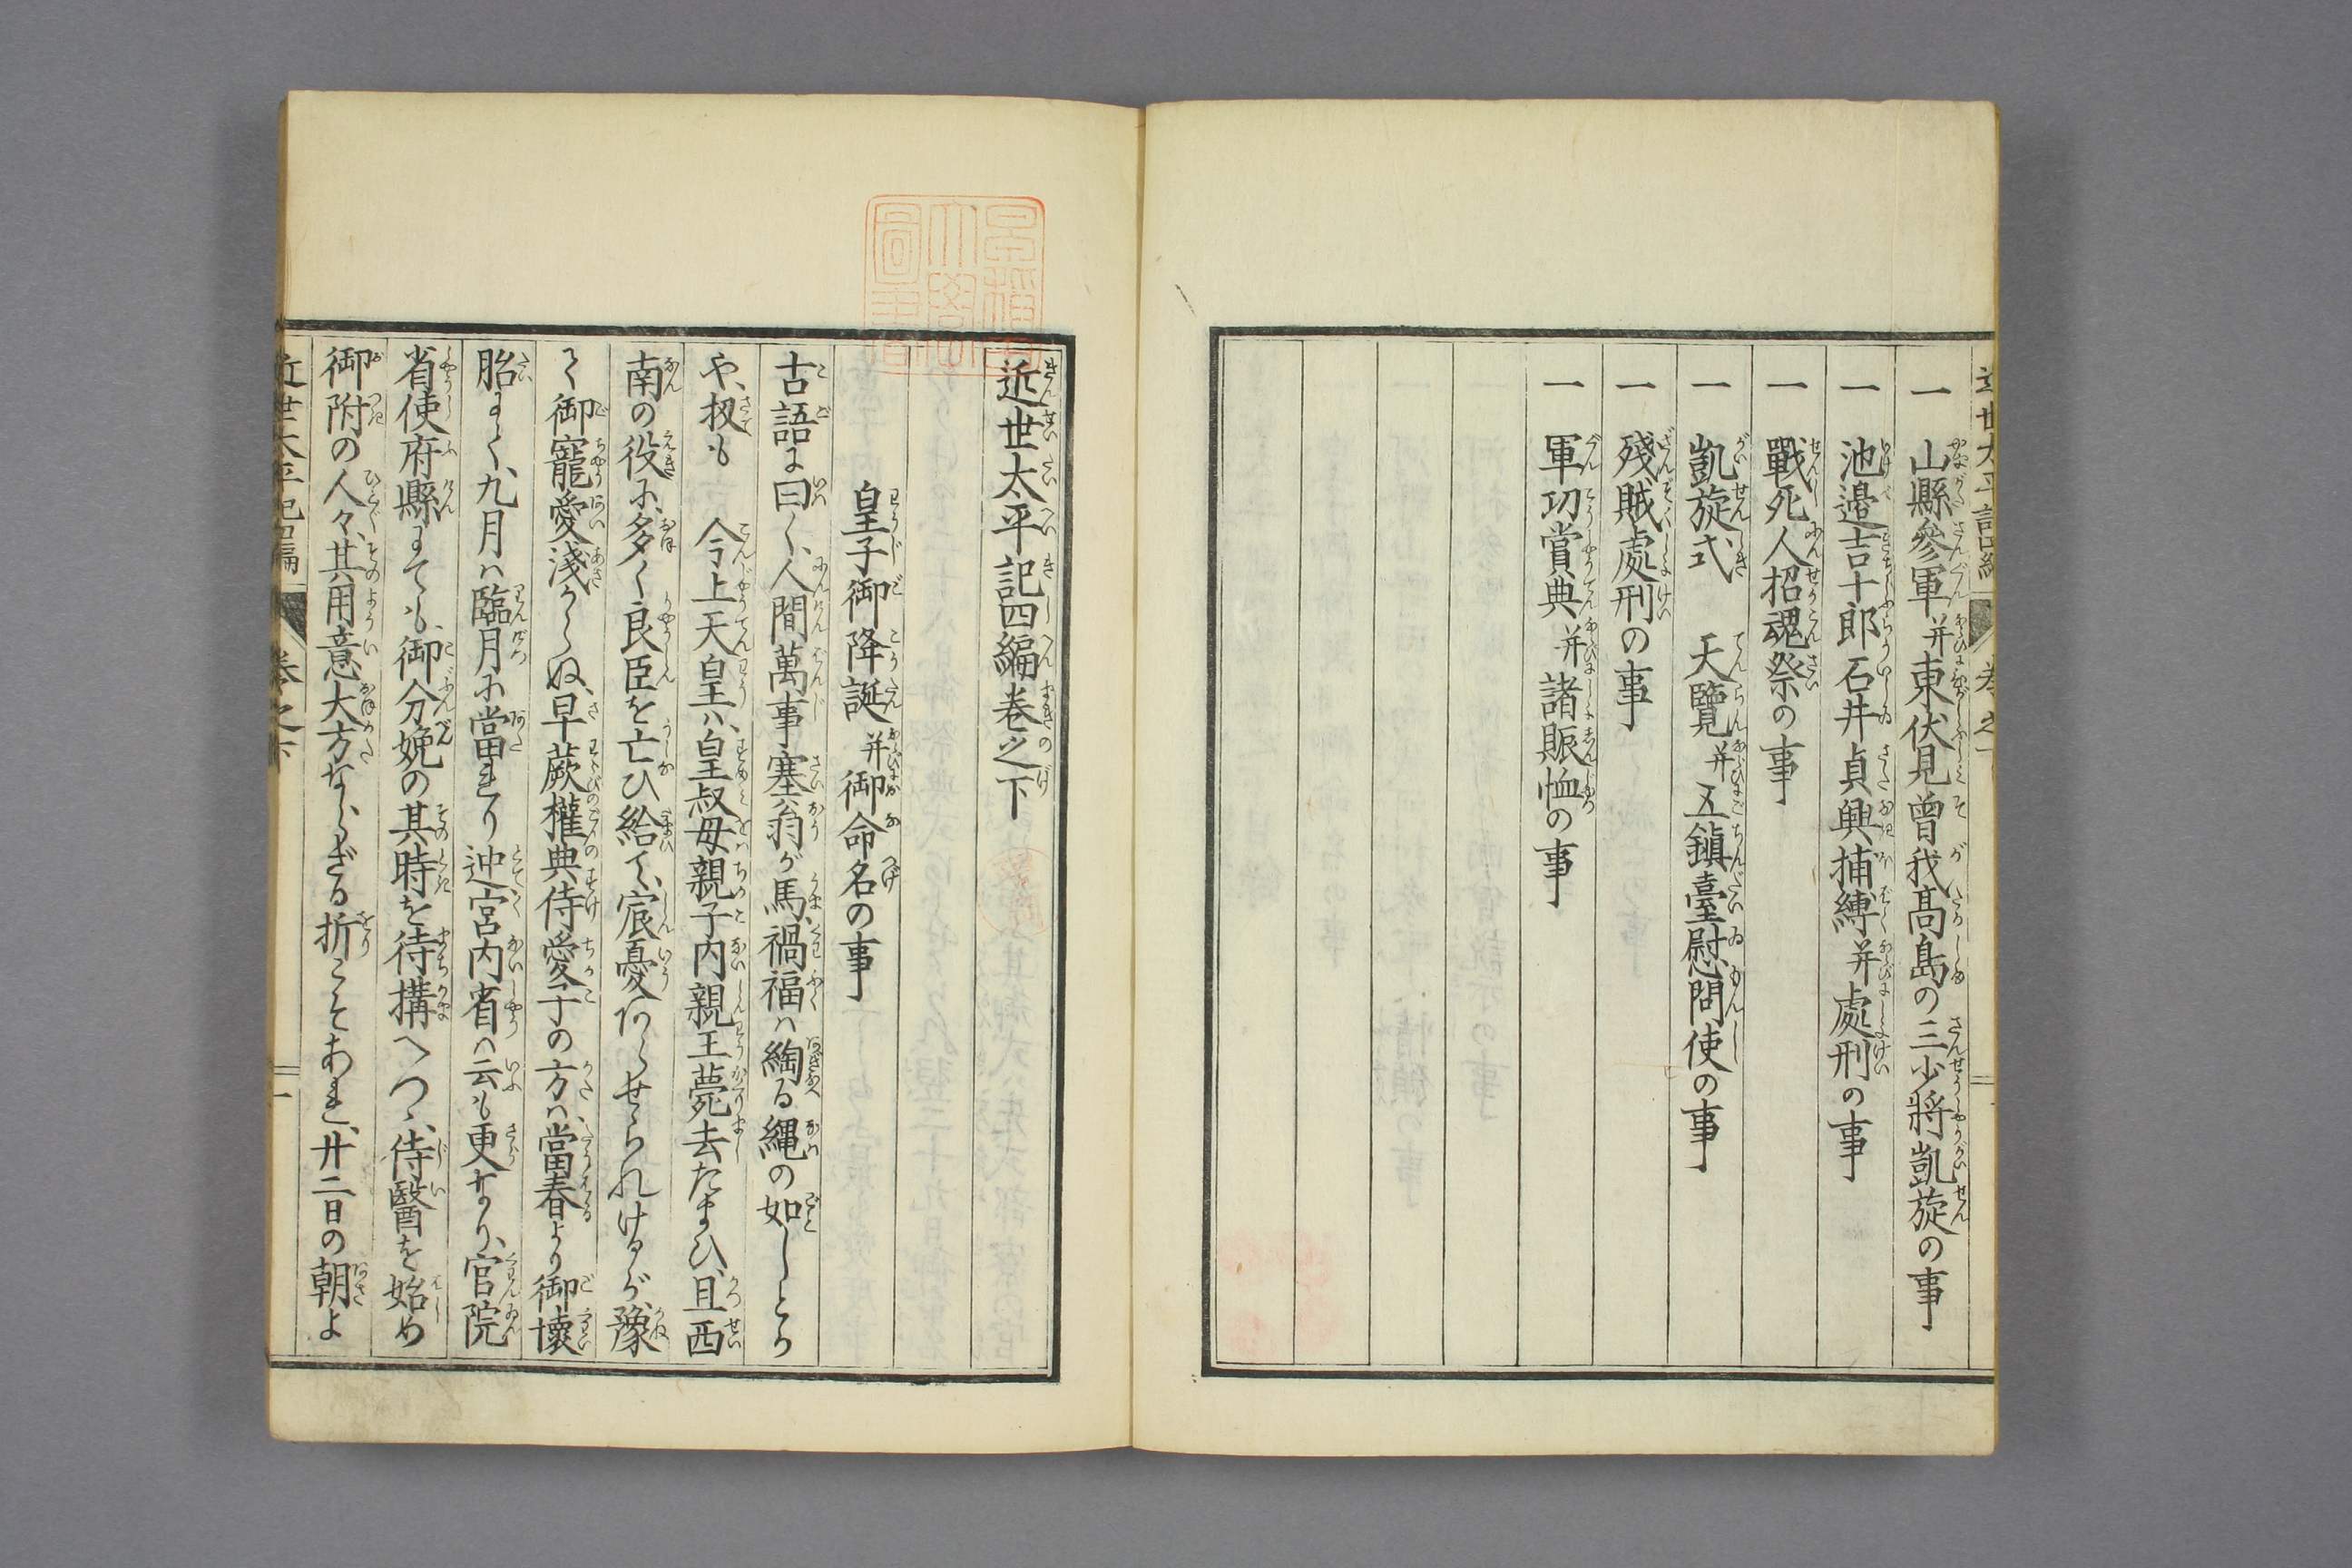 一 山縣參軍并東伏見曾我髙島の三少將凱旋の事
一 池邉吉十郎石井貞興捕縛并處刑の事
一 戰死人招魂祭の事
一 凱旋式 天覽并五鎭臺慰問使の事
一 殘賊處刑の事
一 軍功賞典并諸賑恤の事
近世太平記四編巻之下
皇子御降誕并御命名の事
古語に曰く、人間萬事塞翁が馬、禍福ハ綯る縄の如しとか
や、扨も 今上天皇ハ、皇叔母親子内親王薨去たまひ、且西
南の役に、多く良臣を亡ひ給て、宸憂あらせられけるが、豫
て御寵愛淺からぬ、早蕨權典侍愛子の方ハ、當春より御懷
胎にて、九月ハ臨月に當れり迚宮内省ハ云も更なり、官院
省使府縣までも、御分娩の其時を待搆へつゝ、侍醫を始め
御附の人々、其用意大方ならざる折こそあれ、廾二日の朝よ
近世太平記四編 巻之下 一